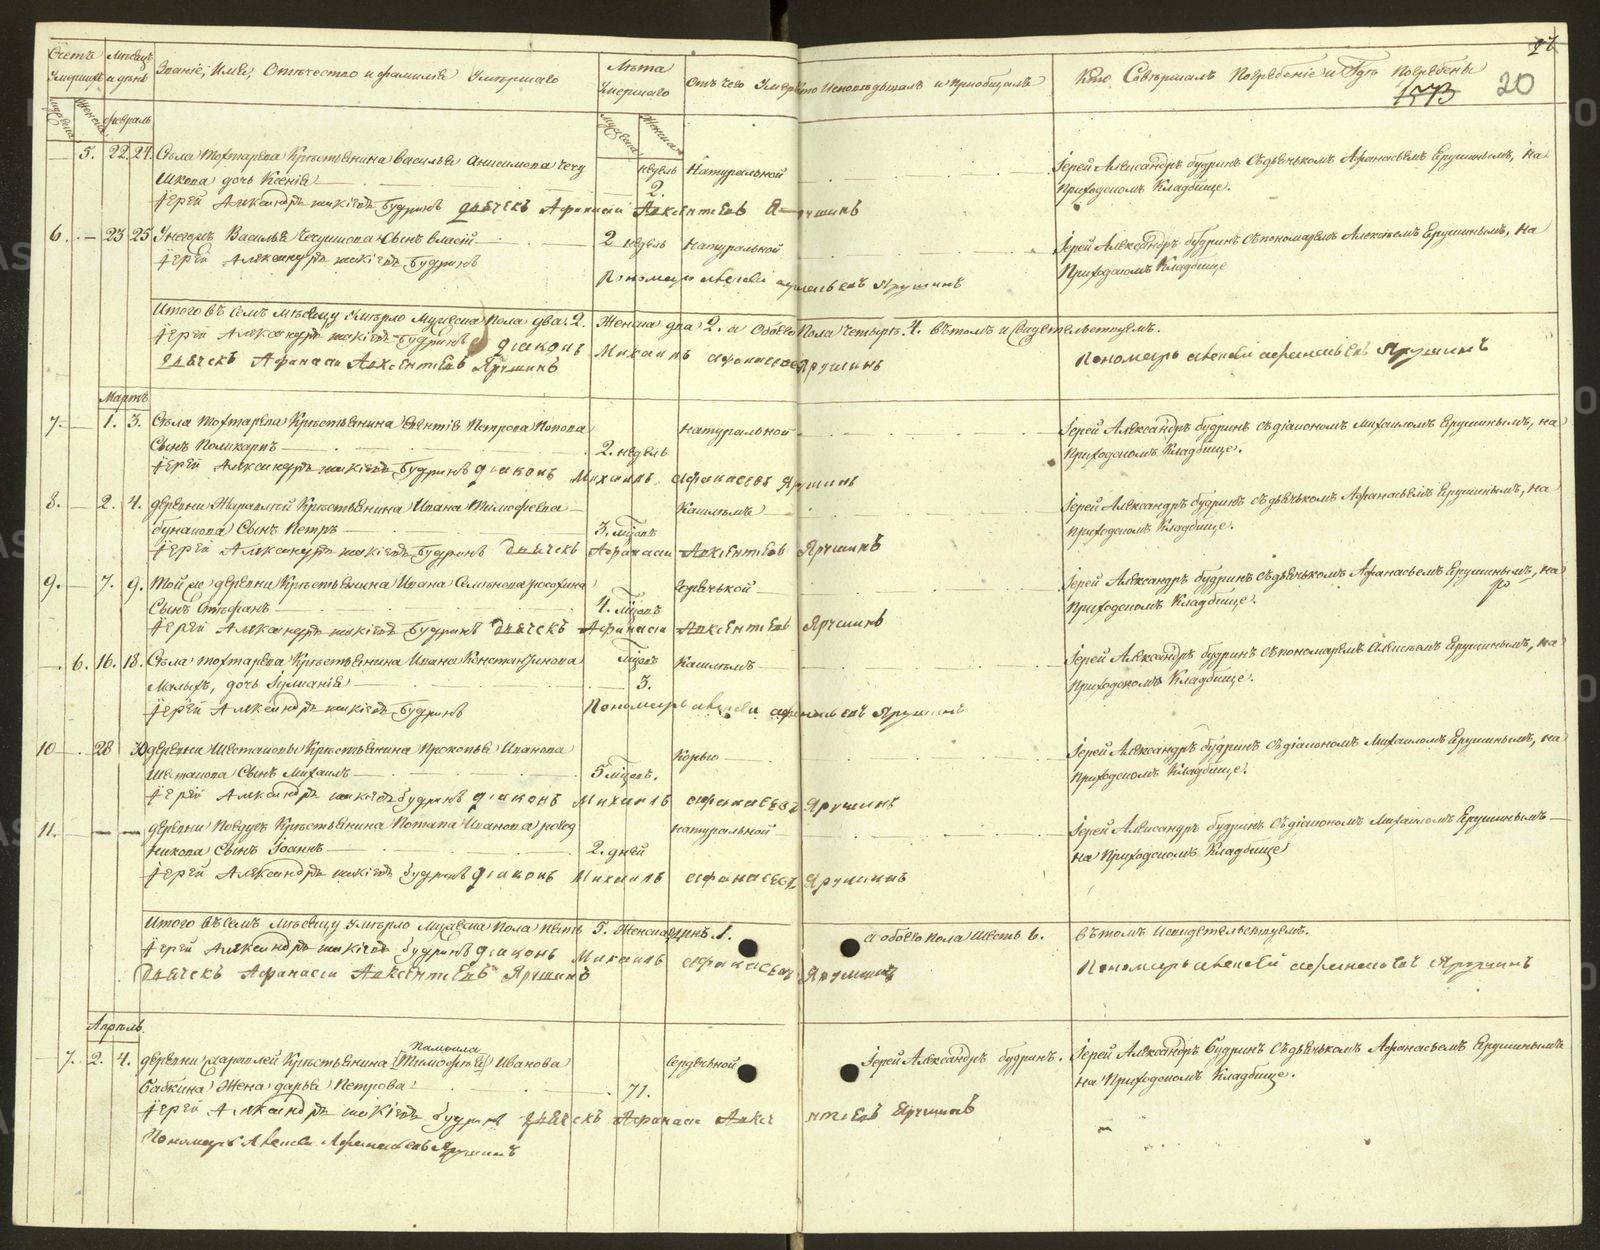 Счетъ умершихъ
Мѣсяцъ и день
Званіе, Имя, Отчество и фамилія Умершаго
Лѣта Умершаго
Отъ чего Умеръ
Кто Исповѣдывалъ и Приобщалъ
Кто Совершалъ Погребеніе и Гдѣ Погребены
20
Мужеска
Женска
февраль
Мужеска
Женска
5. 22. 24. Села Тохтарева Крестьянина Василья Анисимова Чечу
шкова дочь Ксенія
недель 2.
Натуральной
Іерей Александръ Будринъ съ дьячькомъ Афанасьемъ Ярушинымъ, на
Приходскомъ Кладбище.
Іерей Александръ Будринъ дьячекъ Афанасій Авксентіевъ Ярушинъ
6. 23 25 Унегожъ Василья Чечушкова Сынъ Власій
2 недель
Натуральной
Іерей Александръ Будринъ съ пономаремъ Алексѣемъ Ярушинымъ, на
Приходскомъ Кладбище
Іерей Александръ Будринъ
Пономарь Алексей Афанасьевъ Ярушинъ
Итого въ семъ Мѣсяцу Умерло Мужеска Пола два. 2. Женска два 2. а Обоего Пола Четыре. 4. въ томъ и Свидетельствуемъ.
Іерей Александръ Будринъ діаконъ Михаилъ Афанасьевъ Ярушинъ
дьячекъ Афанасій Авксентіевъ Ярушинъ
Пономарь Алексей Афанасьевъ Ярушинъ
Мартъ
7. 1. 3. Села Тохтарева Крестьянина Петрова Попова
Сынъ Поликарпъ
2. недель
натуральной
Іерей Александръ Будринъ съ діакономъ Михаиломъ Ярушинымъ, на
Приходскомъ Кладбище.
Іерей Александръ Будринъ діаконъ Михаилъ Афанасьевъ Ярушинъ
8. 2. 4. деревни Журавлей Крестьянина Ивана Тимофеева
Бунакова Сынъ Петръ
3. мѣсяцъ
Кашлемъ
Іерей Александръ Будринъ съ дьячькомъ Афанасьемъ Ярушинымъ, на
приходскомъ Кладбище.
Іерей Александръ Будринъ дьячекъ Афанасій Авксентіевъ Ярушинъ
9. 7. 9. Той же деревни Крестьянина Ивана Семенова
Сынъ Стефанъ
4. мѣсяцъ
Горячькой
Іерей Александръ Будринъ съ дьячькомъ Афанасьемъ Ярушинымъ, на
Приходскомъ Кладбище.
Іерей Александръ Будринъ дьячекъ Афанасій Авксентіевъ Ярушинъ
6. 16. 18. Села Тохтарева Крестьянина Ивана Константинова
Малыхъ, дочь Іуліанія
мѣсяцъ 3.
Кашлемъ
Іерей Александръ Будринъ съ пономаремъ Алексѣемъ Ярушинымъ, на
Приходскомъ Кладбище.
Іерей Александръ Будринъ
Пономарь Алексей Афанасьевъ Ярушинъ
10 28 30 деревни Шестаковы Крестьянина Прокопья Иванова
Шестакова Сынъ Михаилъ
5 мѣсяцъ.
Корью
Іерей Александръ Будринъ съ діакономъ Михаиломъ Ярушинымъ, на
Приходскомъ Кладбище.
Іерей Александръ Будринъ діаконъ Михаилъ Афанасьевъ Ярушинъ
11. деревни Крестьянина Потапа Иванова
Сынъ Іоаннъ
2. дней
натуральной
Іерей Александръ Будринъ съ діакономъ Михаиломъ Ярушинымъ
на Приходскомъ Кладбище
Іерей Александръ Будринъ діаконъ Михаилъ Афанасьевъ Ярушинъ
Итого въ семъ Мѣсяцу Умерло Мужеска Пола пять 5. Женска 1. а обоего пола Шесть 6. въ томъ и свидетельствуемъ.
Іерей Александръ Будринъ діаконъ Михаилъ Афанасьевъ Ярушинъ
дьячекъ Афанасій Авксентіевъ Ярушинъ
Пономарь Алексей Афанасьевъ Ярушинъ
Апрель.
7. 2. 4. деревни Крестьянина (Тимофея) Иванова
Бабкина Жена дарья Петрова
71.
Сердечьной
Іерей Александръ Будринъ.
Іерей Александръ Будринъ съ дьячькомъ Афанасьемъ Ярушинымъ
на Приходскомъ Кладбище.
Іерей Александръ Будринъ дьячекъ Афанасій Авксентіевъ Ярушинъ
Пономарь Алексей Афанасьевъ Ярушинъ